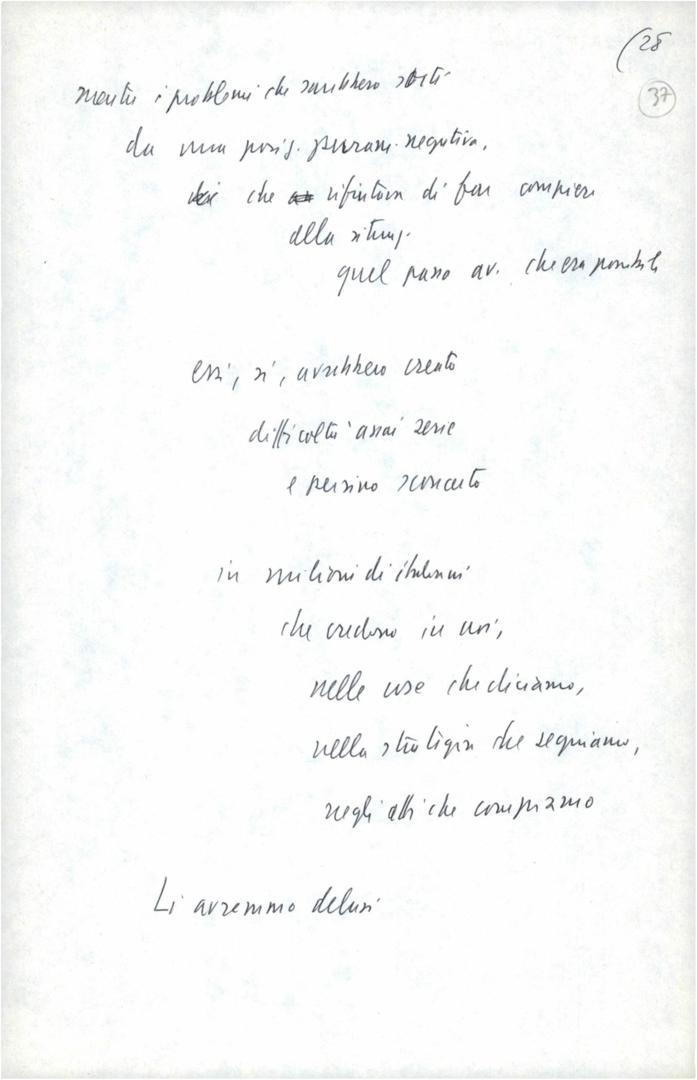 (28
37
mentre i problemi che sarebbero sorti
da una posiz. puram. negativa,
che rifiutava di far compiere
alla situaz.
quel passo av. che era possibile
essi, sì, avrebbero creato
difficoltà assai serie
e persino sconcerto
in milioni di italiani
che credono in noi,
nelle cose che diciamo,
nella strategia che seguiamo,
negli atti che compiamo
Li avremmo delusi